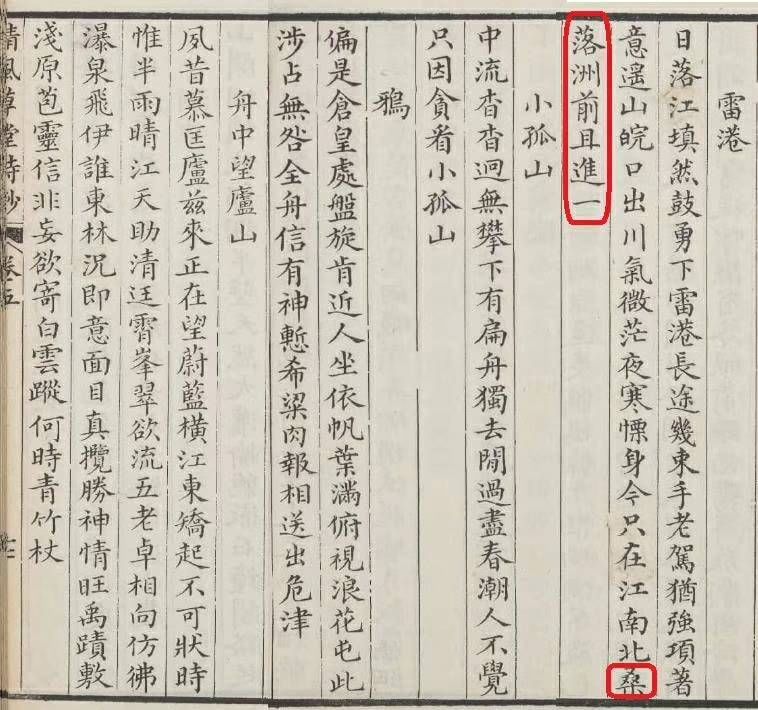 雷港
日落江填然鼓勇下雷港長途幾東手老駕猶強項著
意遥山皖口出川氣微茫夜寒慄身今只在江南北桑
落洲前且進一
小孤山
中流杳杳迥無攀下有扁舟獨去閒過盡春潮人不覺
只因貪看小孤山
鴉
偏是倉皇處盤旋肯近人坐依帆葉滿俯視浪花屯此
涉占無咎全舟信有神慙希粱肉報相送出危津
舟中望廬山
夙昔慕匡廬兹來正在望蔚藍橫江東矯起不可狀時
惟半雨晴江天助清迋霄峯翠欲流五老卓相向仿彿
瀑泉飛伊誰東林況即意面目真攬勝神情旺禹蹟敷
淺原苞靈信非妄欲寄白雲蹤何時青竹杖
清風草堂詩鈔 卷五